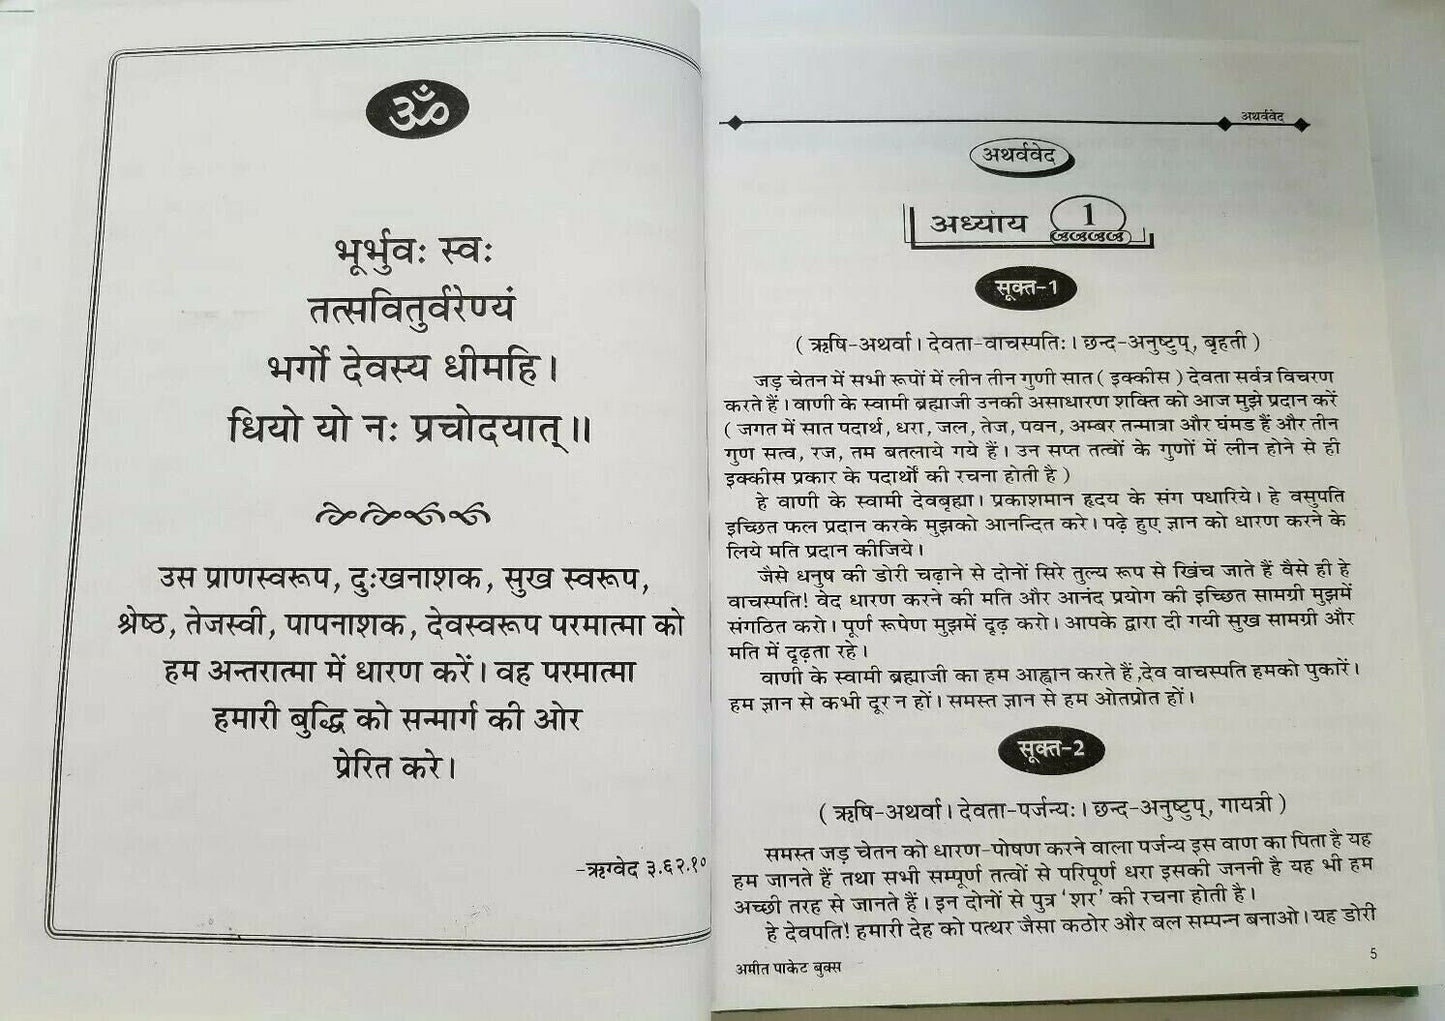 ॐ
भूर्भुवः स्वः
तत्सवितुर्वरेण्यं
भर्गो देवस्य धीमहि।
धियो यो नः प्रचोदयात्॥
उस प्राणस्वरूप, दुःखनाशक, सुख स्वरूप,
श्रेष्ठ, तेजस्वी, पापनाशक, देवस्वरूप परमात्मा को
हम अन्तरात्मा में धारण करें। वह परमात्मा
हमारी बुद्धि को सन्मार्ग की ओर
प्रेरित करे।
-ऋग्वेद ३.६२.१०
अथर्ववेद
अथर्ववेद
अध्याय 1
सूक्त-1
( ऋषि-अथर्वा। देवता-वाचस्पतिः। छन्द-अनुष्टुप्, बृहती )
जड़ चेतन में सभी रूपों में लीन तीन गुणी सात ( इक्कीस ) देवता सर्वत्र विचरण
करते हैं। वाणी के स्वामी ब्रह्माजी उनकी असाधारण शक्ति को आज मुझे प्रदान करें
( जगत में सात पदार्थ, धरा, जल, तेज, पवन, अम्बर तन्मात्रा और घंमड हैं और तीन
गुण सत्व, रज, तम बतलाये गये हैं। उन सप्त तत्वों के गुणों में लीन होने से ही
इक्कीस प्रकार के पदार्थों की रचना होती है )
हे वाणी के स्वामी देवबृह्मा। प्रकाशमान हृदय के संग पधारिये। हे वसुपति
इच्छित फल प्रदान करके मुझको आनन्दित करे। पढ़े हुए ज्ञान को धारण करने के
लिये मति प्रदान कीजिये।
जैसे धनुष की डोरी चढ़ाने से दोनों सिरे तुल्य रूप से खिंच जाते हैं वैसे ही हे
वाचस्पति! वेद धारण करने की मति और आनंद प्रयोग की इच्छित सामग्री मुझमें
संगठित करो। पूर्ण रूपेण मुझमें दृढ़ करो। आपके द्वारा दी गयी सुख सामग्री और
मति में दृढ़ता रहे।
वाणी के स्वामी ब्रह्माजी का हम आह्वान करते हैं ,देव वाचस्पति हमको पुकारें।
हम ज्ञान से कभी दूर न हों। समस्त ज्ञान से हम ओतप्रोत हों।
सूक्त-2
( ऋषि-अथर्वा। देवता-पर्जन्यः। छन्द-अनुष्टुप्, गायत्री )
समस्त जड़ चेतन को धारण-पोषण करने वाला पर्जन्य इस वाण का पिता है यह
हम जानते हैं तथा सभी सम्पूर्ण तत्वों से परिपूर्ण धरा इसकी जननी है यह भी हम
अच्छी तरह से जानते हैं। इन दोनों से पुत्र 'शर' की रचना होती है।
हे देवपति! हमारी देह को पत्थर जैसा कठोर और बल सम्पन्न बनाओ। यह डोरी
अमीत पाकेट बुक्स
5